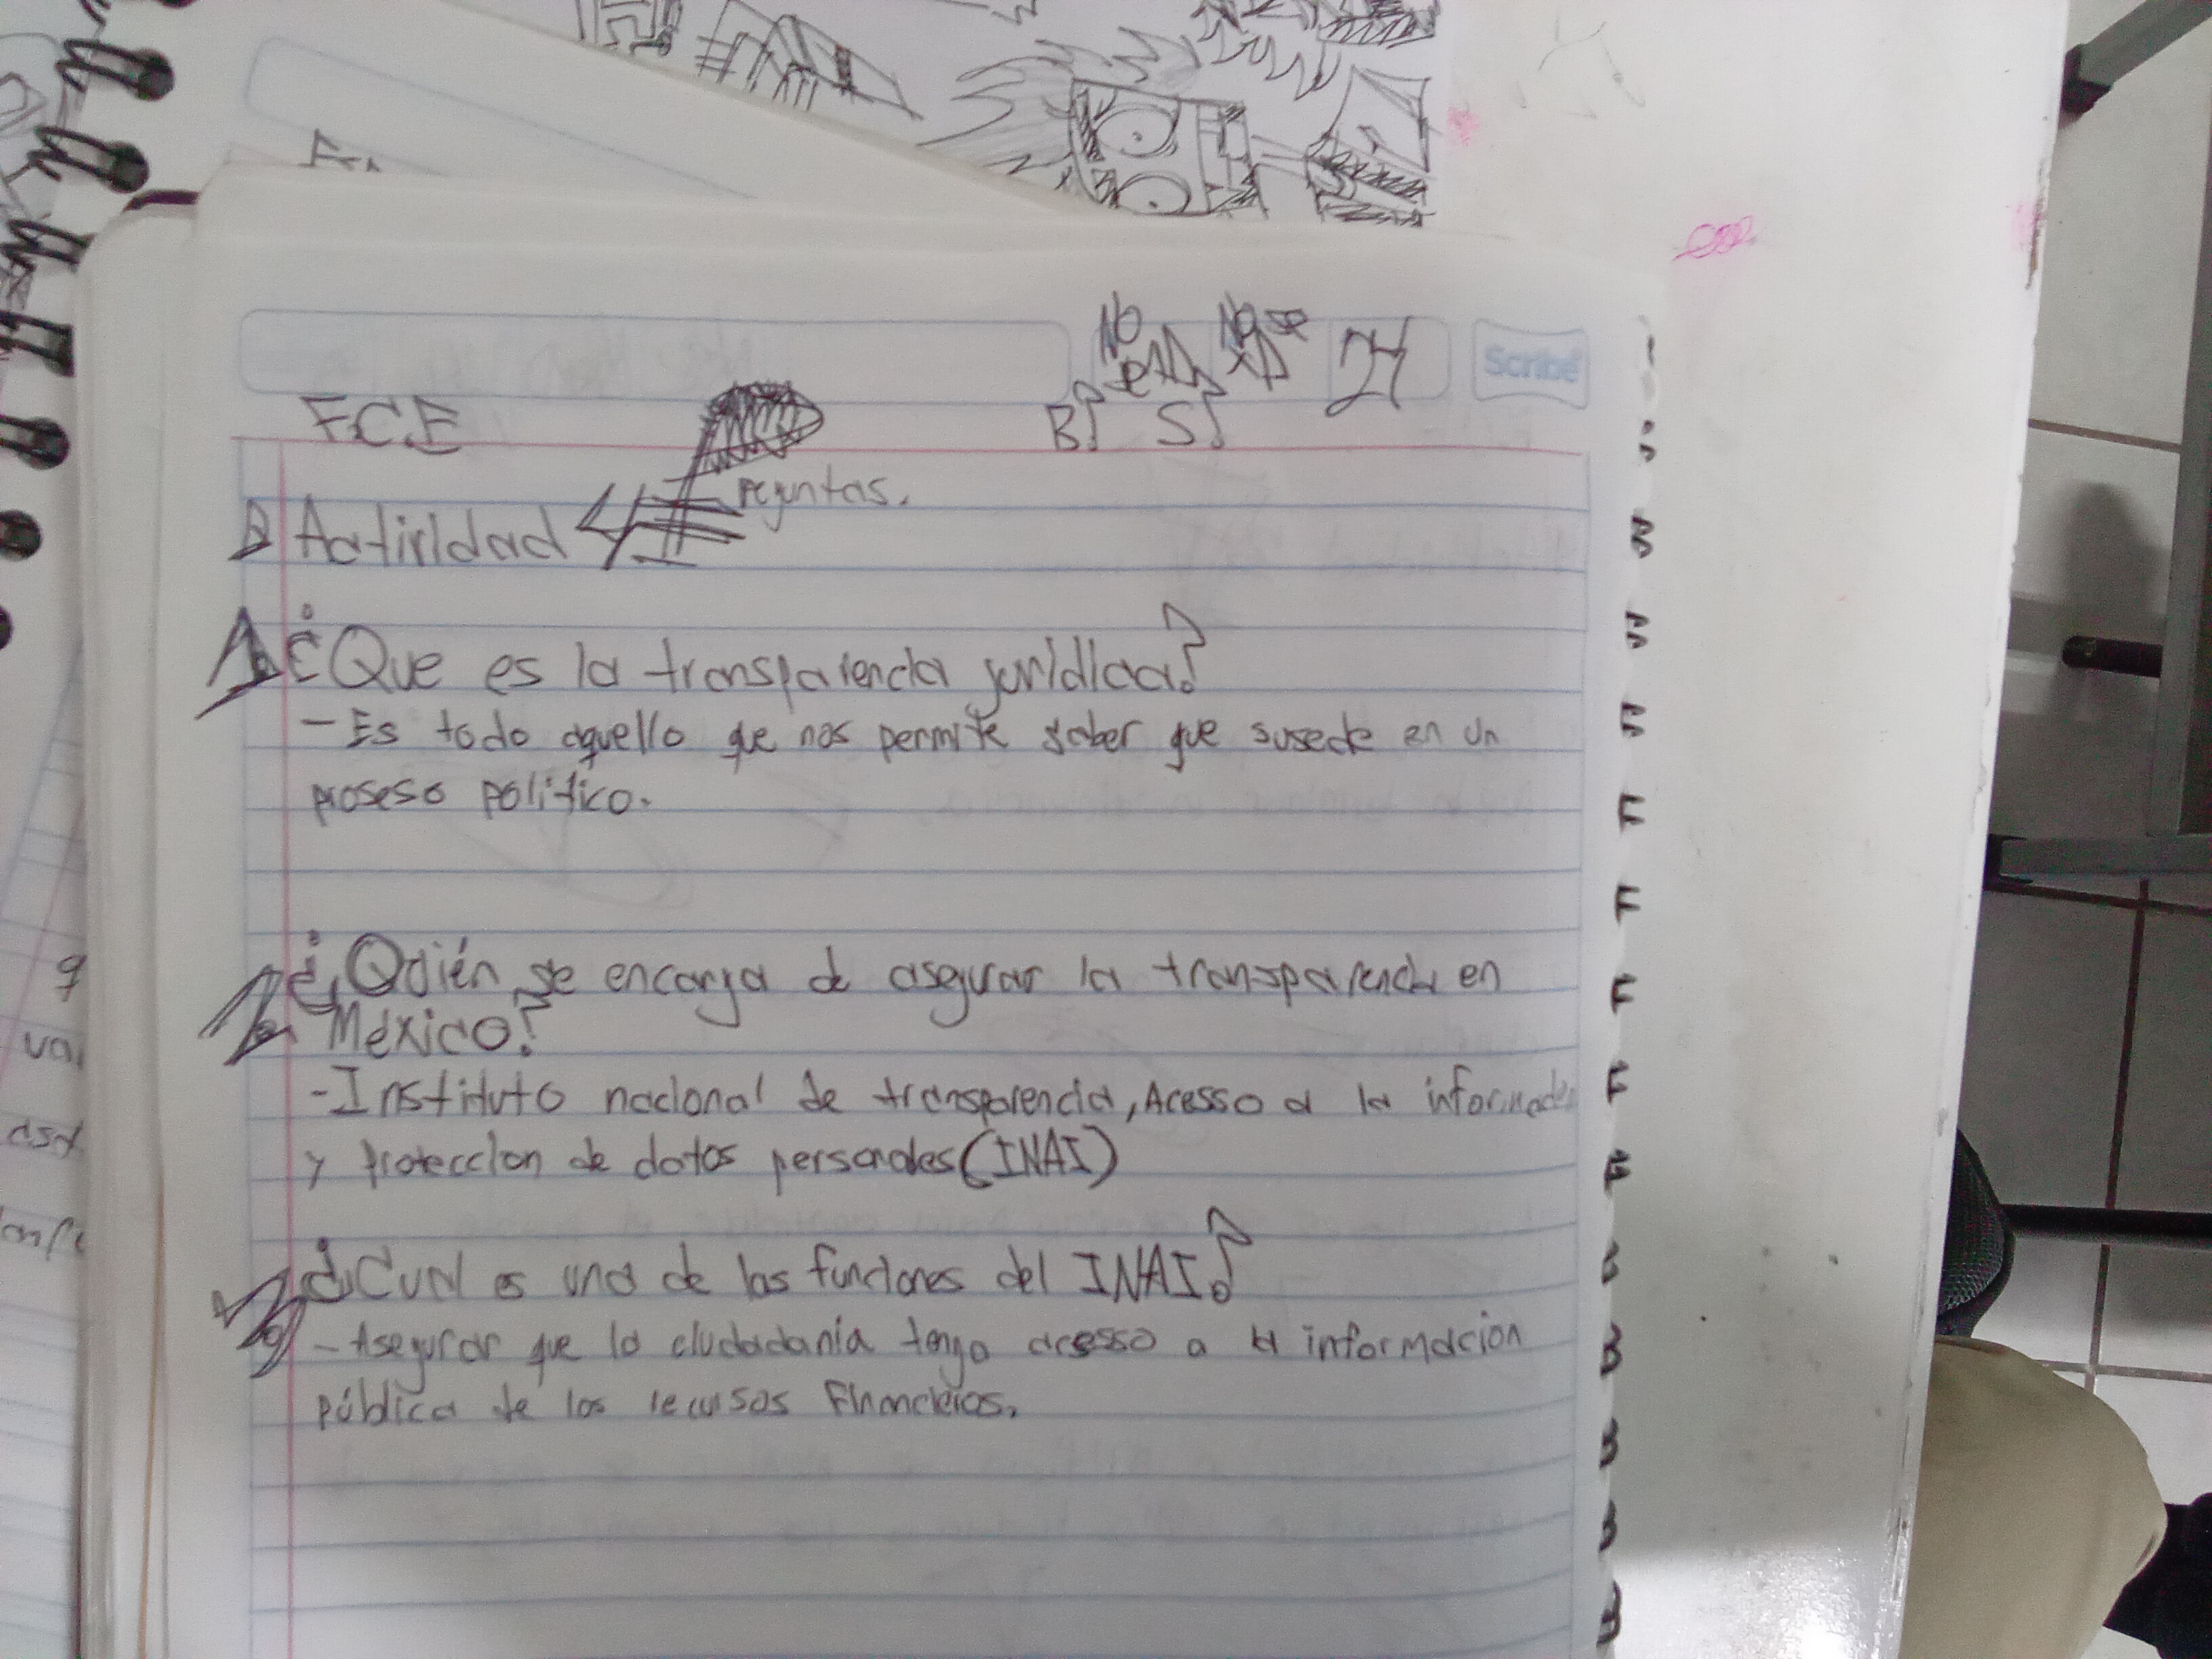 No se No se 24 Scribe
xD xD
F.C.E B? S?
Actividad 4 Peguntas.
1. ¿Que es la transparencia juridica?
- Es todo aquello que nos permite saber que susede en un
proseso politico.
2. ¿Quién se encarga de asegurar la transparencia en
México?
- Instituto nacional de transparencia, Acesso a la
y Proteccion de datos personales (INAI)
3. ¿Cual es una de las funciones del INAI?
- Asegurar que la ciudadanía tenga acesso a la informacion
pública de los recursos financieros.